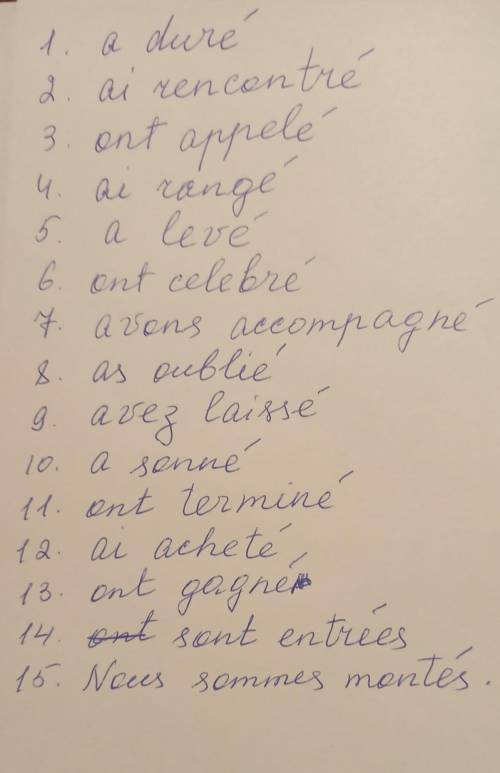 1. a duré
2. ai rencontré
3. ont appelé
4. ai rangé
5. a levé
6. ont celebré
7. avons accompagné
8. as oublié
9. avez laissé
10. a sonné
11. ont terminé
12. ai acheté
13. ont gagné
14. ont sont entrées
15. Nous sommes montés.